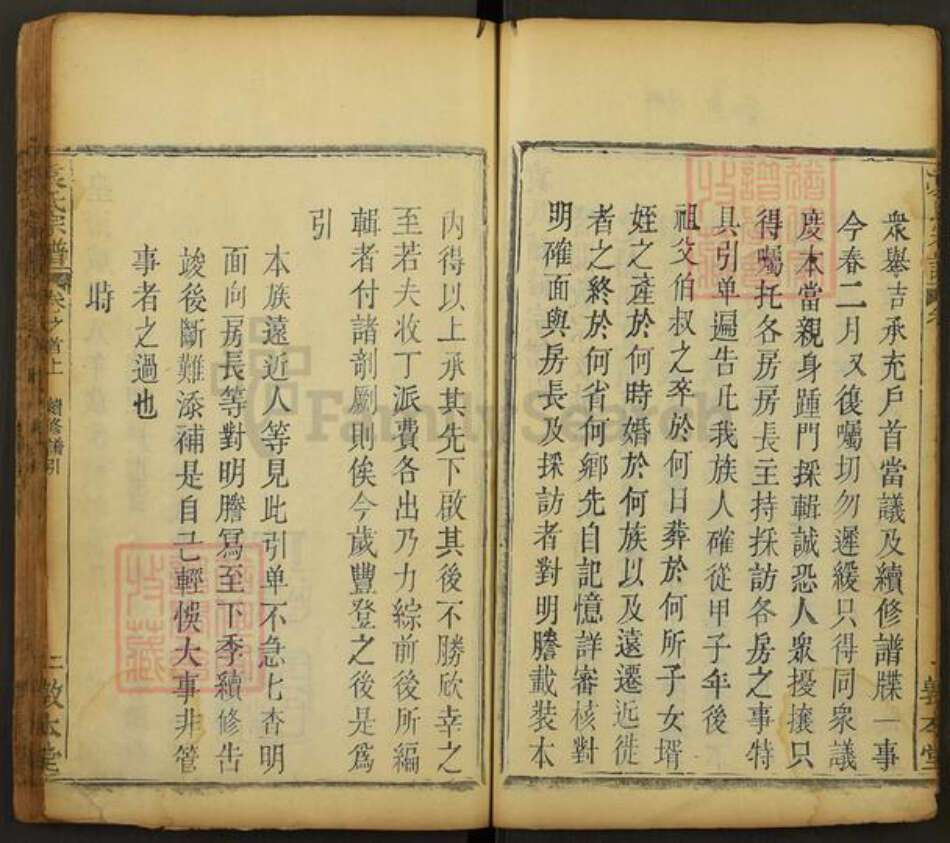 衆舉吉承充戶首當議及續修譜牒一事
今春二月又復囑切勿遲緩只得同衆議
度本當親身踵門採輯誠恐人衆擾攘只
得囑托各房房長主持採訪各房之事特
具引单遍告凡我族人確從甲子年後
祖父伯叔之卒於何日葬於何所子女壻
姪之產於何時婚於何族以及遠遷近徙
者之終於何省何鄉先自記憶詳審核對
明確面與房長及採訪者對明謄載裝本
內得以上承其先下啟其後不勝欣幸之
至若夫收丁派費各出乃力綜前後所編
輯者付諸剞劂則俟今歲豐登之後是爲
引
本族遠近人等見此引单不急七查明
面向房長等對明謄冩至下季續修告
竣後斷難添補是自己輕悞大事非管
事者之過也
旹
氏宗譜
卷之首上
續修譜引
二
敦本堂
敦本堂
FamilySearch